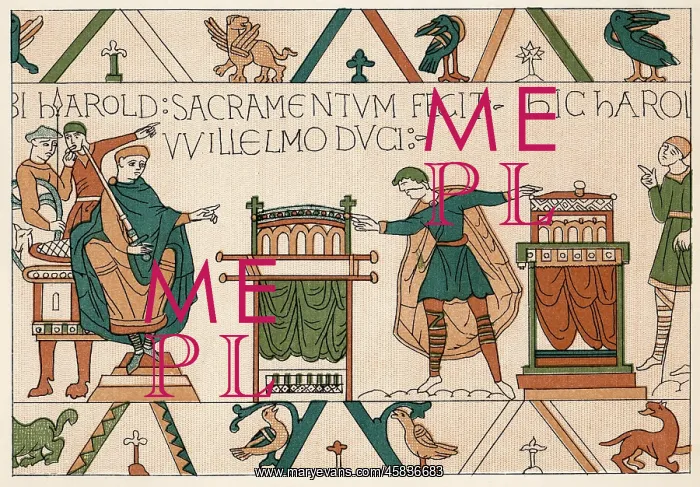 BI hAROLD: SACRAMENTVM FECIT- hIC hAROL
VVILLELMO DVCI:-
ME
PL
ME
PL
www.maryevans.com/45836683